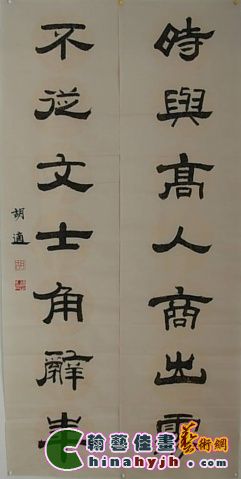 時與高人商出
不從文士角辭
胡適
翰藝佳畫
Chinahyjh.com
藝術網